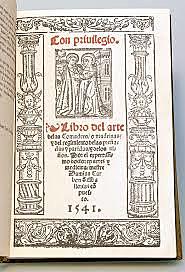 Con privilegio.
Libro del arte
delas Comadres/ o madrinas/
y del regimiento delas preña-
das y paridas/ y delos ni-
ños. Por el expertissi-
mo doctor en artes y
medicina: maestre
Damian Car
bon d̃ Ma
llorca cõ
pue
sto.
1541.